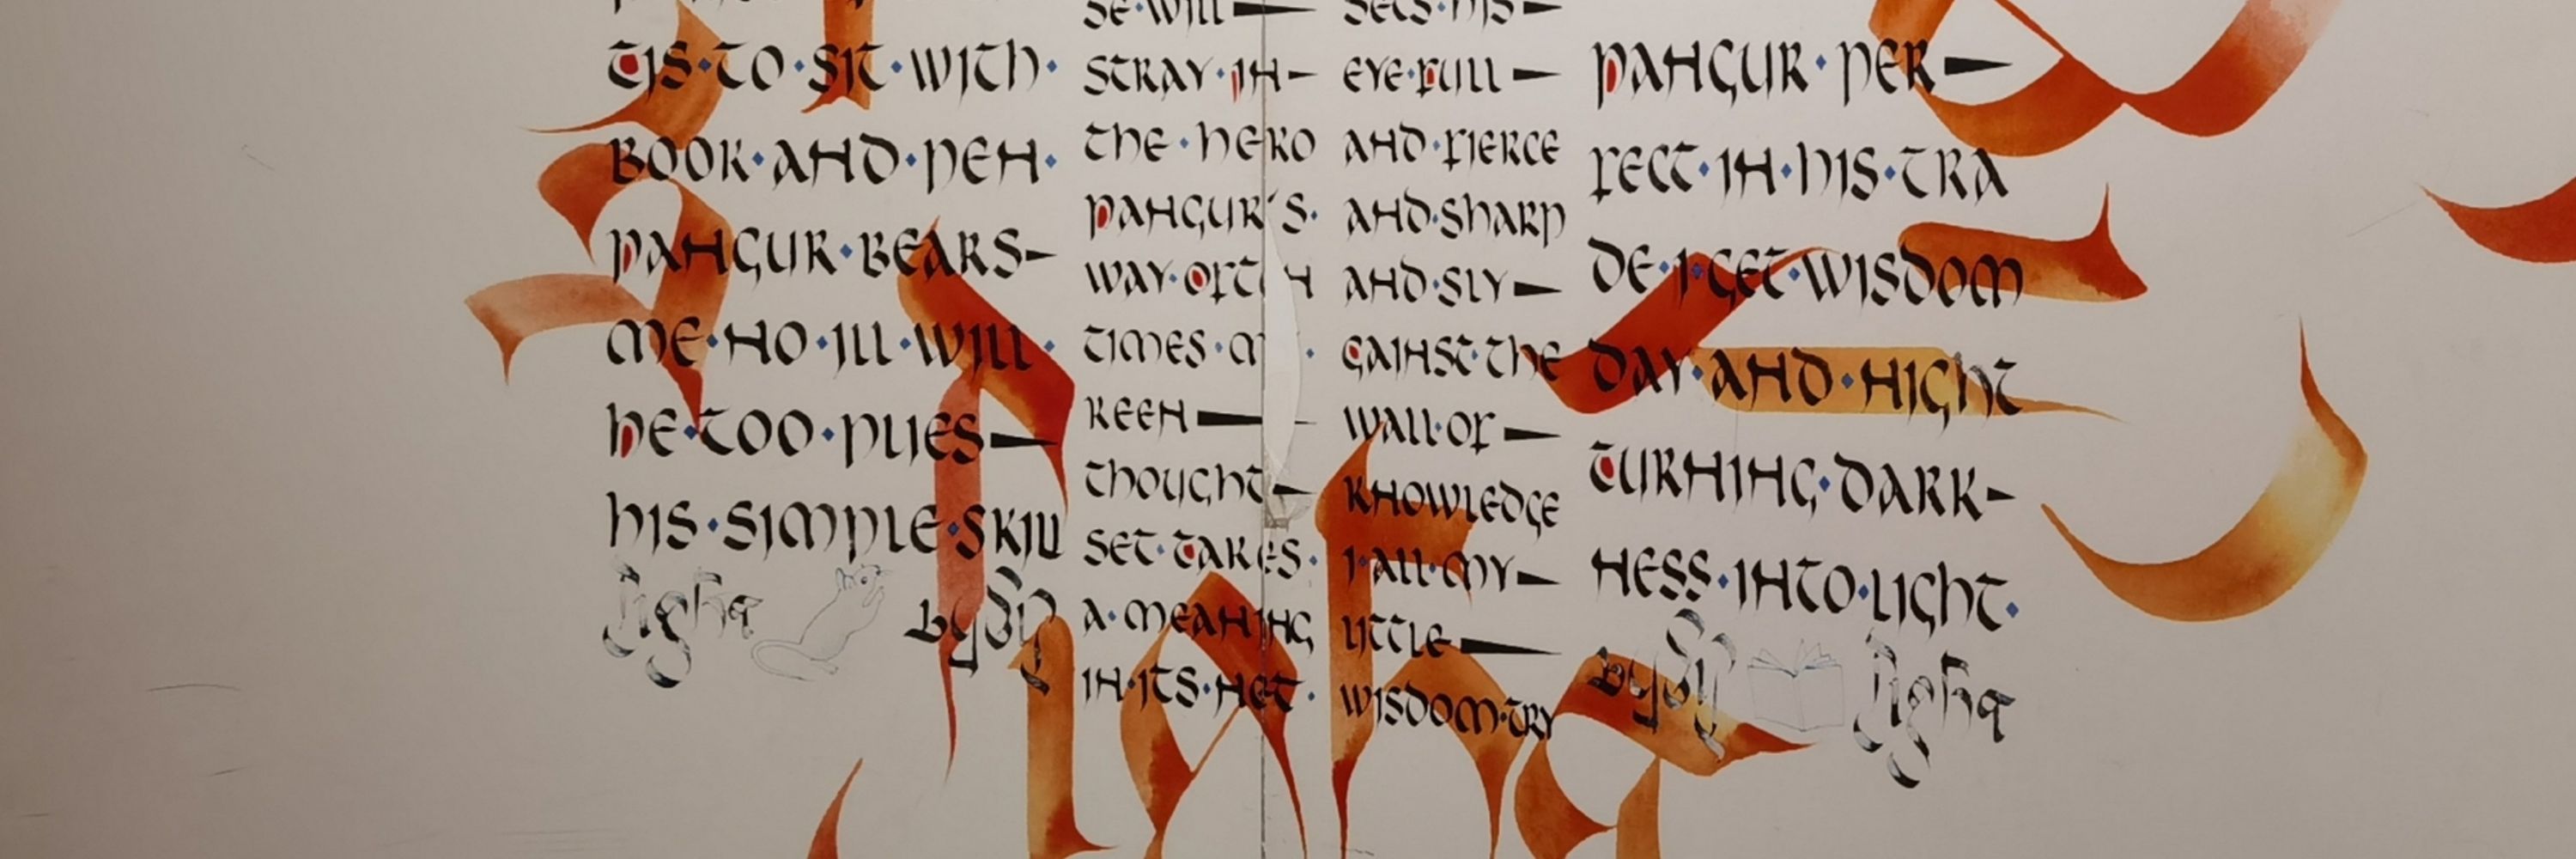 TIS TO SIT WITH
BOOK AND PEN
PANGUR BEARS
ME NO ILL WILL
HE TOO PLIES
HIS SIMPLE SKILL
SE WILL
STRAY IN
THE HERO
PANGUR'S
WAY
TIMES
KEEN
THOUGHT
SET TAKES
A MEANING
IN ITS NET
SETS HIS
EYE FULL
AND FIERCE
AND SHARP
AND SLY
GAINST THE
WALL OF
KNOWLEDGE
I ALL MY
LITTLE
WISDOM TRY
PANGUR PER
FECT IN HIS TRA
DE I GET WISDOM
DAY AND NIGHT
TURNING DARK
NESS INTO LIGHT